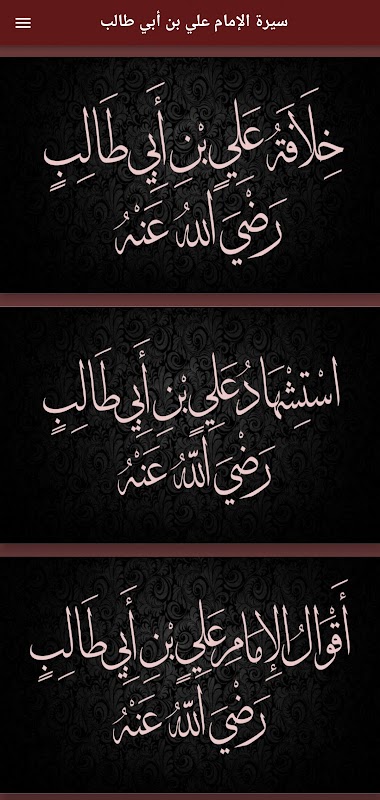 سيرة الإمام علي بن أبي طالب
خِلَافَةُ عَلِيٍ بْنِ أَبِي طَالِبٍ
رَضْيَ اللهُ عَنْهُ
اسْتِشْهَادُ عَلِيٍ بْنِ أَبِي طَالِبٍ
رَضْيَ اللّهُ عَنْهُ
أَقْوَالُ الإِمَامِ عَلِيٍ بْنِ أَبِي طَالِبٍ
رَضْيَ اللّهُ عَنْهُ